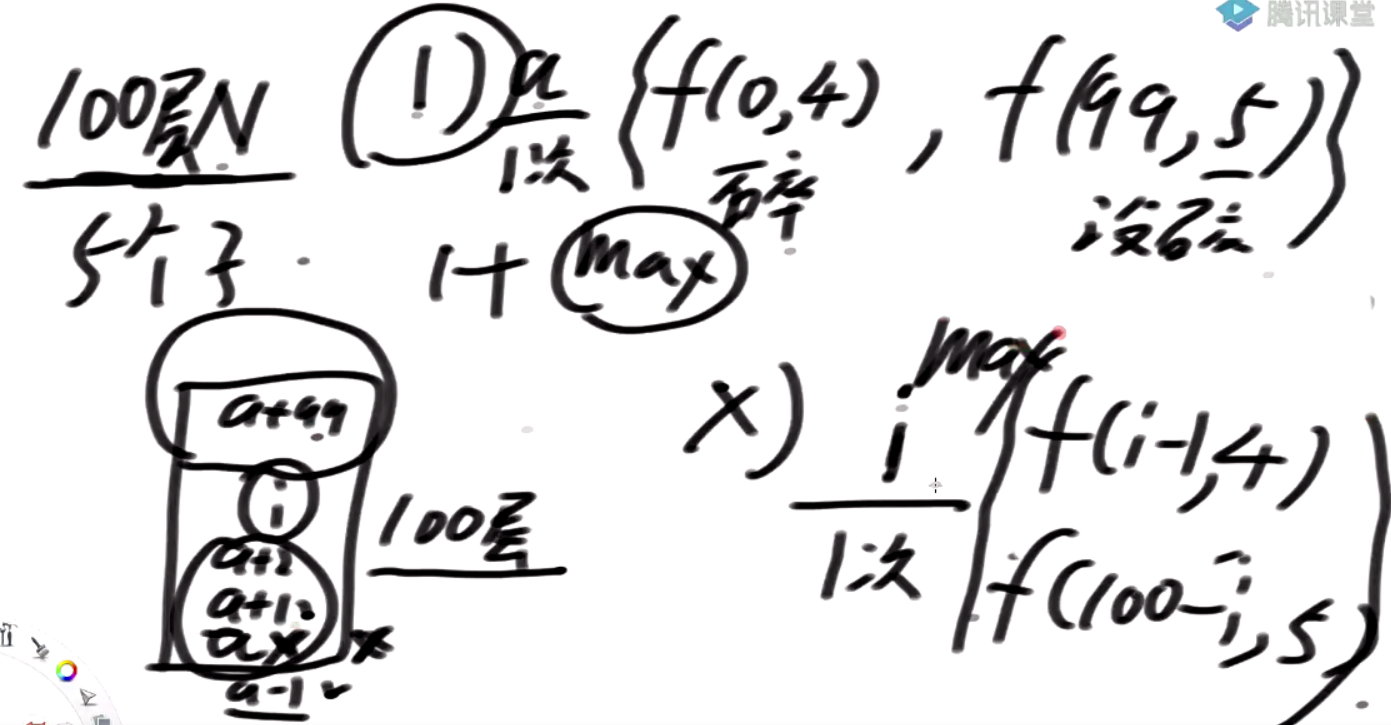 腾讯课堂
100层N
5个子
1) a
1次
{f(0,4), f(99,5)}
碎
没碎
1+ max
a+99
i
a+2
a+1
a x x
a-1
100层
x) i
1次
max
f(i-1,4)
f(100-i,5)